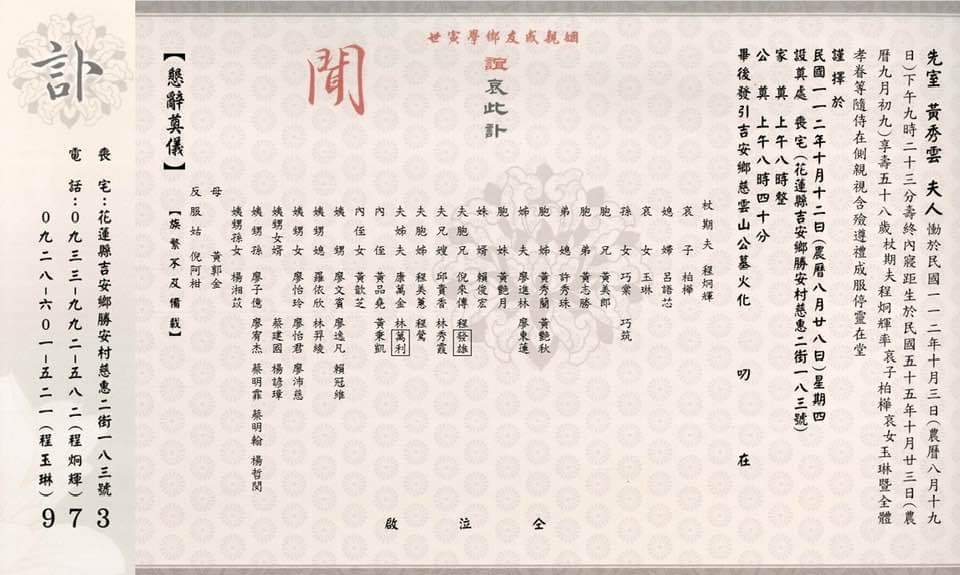 先室 黃秀雲 夫人 慟於民國一一二年十月三日(農曆八月十九
日)下午九時二十三分壽終內寢距生於民國五十五年十月廿三日(農
曆九月初九)享壽五十八歲杖期夫程炯輝率哀子柏樺哀女玉琳暨全體
孝眷等隨侍在側親視含殮遵禮成服停靈在堂
謹擇於
民國一一二年十月十二日(農曆八月廿八日)星期四
設奠處 喪宅(花蓮縣吉安鄉勝安村慈惠二街一八三號)
家奠 上午八時整
公奠 上午八時四十分
畢後發引吉安鄉慈雲山公墓火化 叨 在
姻親戚友鄉學寅世
誼哀此訃
聞
杖期夫 程炯輝
哀子 柏樺
媳 呂語芯
哀女 玉琳
孫女 巧棠 巧筑
胞兄 黃美郎
胞弟 黃志勝
弟媳 許秀珠
胞姊 黃秀蘭 黃艷秋
姊夫 廖進林 廖東蓮
胞妹 黃艷月
妹婿 賴俊宏
夫胞兄 倪來傳 程發雄
夫兄嫂 邱貴香 林秀霞
夫胞姊 程美蕙 程鶯
夫姊夫 康萬金 林萬利
內侄 黃品堯 黃秉凱
內侄女 黃歆芝
姨甥 廖文賓 廖逸凡 賴冠維
姨甥媳 羅依欣 林昇綾
姨甥女 廖怡玲 廖怡君 廖沛慈
姨甥女婿 蔡建國 楊諺璋
姨甥孫 廖子億 廖宥杰 蔡明霏 蔡明翰 楊哲閔
姨甥孫女 楊湘苡
母 黃郭金
反服姑 倪阿柑
【族繁不及備載】
仝 泣 啟
【懇辭奠儀】
訃
喪宅:花蓮縣吉安鄉勝安村慈惠二街一八三號
電話:0933-992-582(程炯輝)
0928-601-521(程玉琳)
973